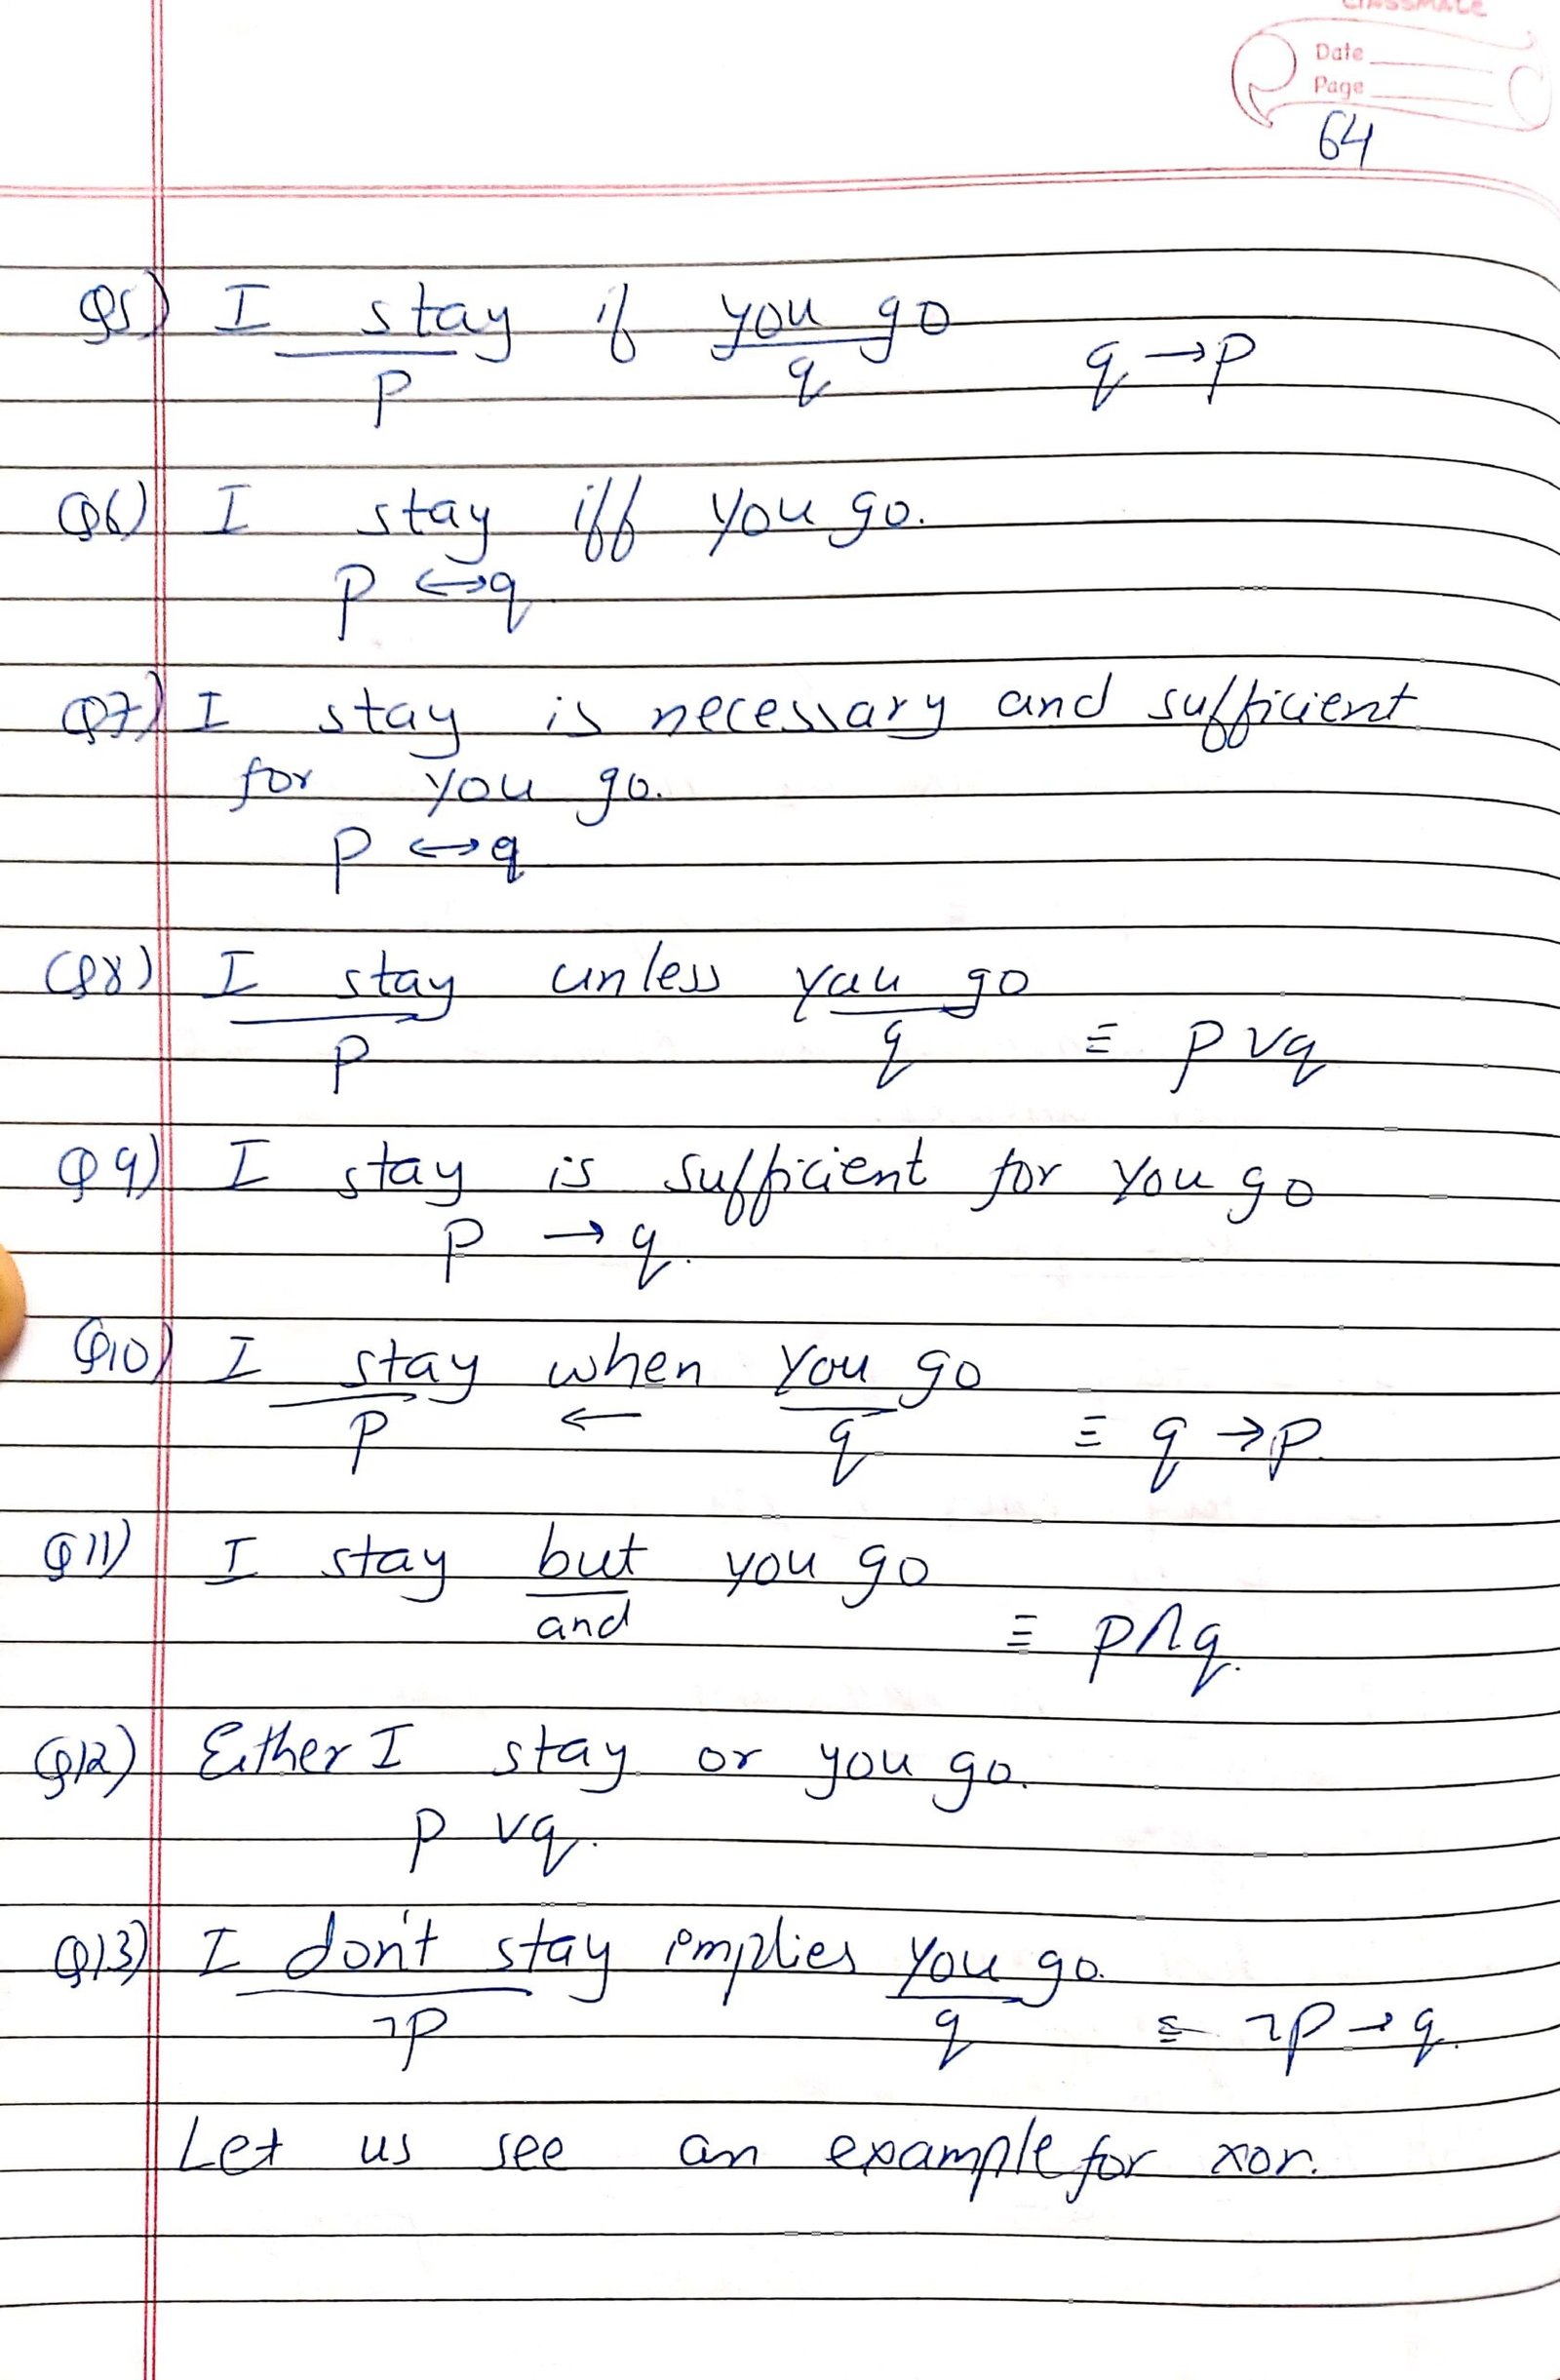 classmate
Date
Page
64
Q5) I stay if you go
p q q → p
Q6) I stay iff you go.
p ↔ q
Q7) I stay is necessary and sufficient
for you go.
p ↔ q
Q8) I stay unless you go
p q ≡ p ∨ q
Q9) I stay is sufficient for you go
p → q.
Q10) I stay when you go
p ← q ≡ q → p
Q11) I stay but you go
and ≡ p ∧ q.
Q12) Either I stay or you go.
p ∨ q.
Q13) I don't stay implies you go.
¬p q ≡ ¬p → q.
Let us see an example for xor.